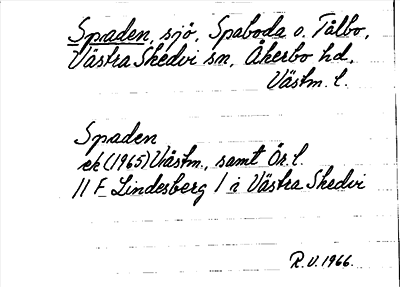 Spaden, sjö, Spaboda o. Tålbo,
Västra Skedvi sn, Åkerbo hd,
Västm. l.
Spaden
ek (1965) Västm., samt Ör. l.
11 F Lindesberg / i Västra Skedvi
R.V. 1966.